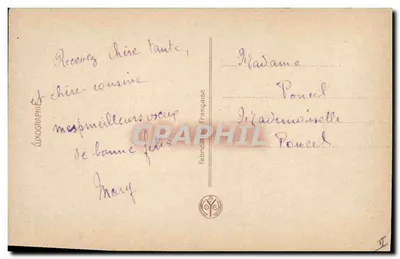 Recevez chère tante,
et chère cousine
mes meilleurs vœux
de bonne fête
Mary
Madame
Poncel
Mademoiselle
Poncel
LUXOGRAPHIE
Fabrication Française
CPAPHIL